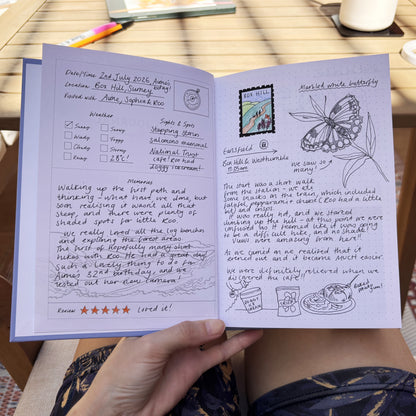 Date/Time 2nd July 2026, Aime's bday!
Location Box Hill, Surrey
Hosted with Aime, Sophie & Koo
Weather
Sunny
Sunny
Windy
Foggy
Cloudy
Snowy
Rainy
28°C!
Sights & Spots
Stepping Stones
Salomons memorial
National Trust
cafe! Koo had
doggy icecream!
Memories
Walking up the first path and
thinking - what have I done, but
soon realising it wasn't all that
steep, and there were plenty of
shaded spots for little Koo.
We really loved all the log benches
and exploring the forest areas.
The first of hopefully many short
hikes with Koo. He had a great day.
Such a lovely thing to do for
Aimes 32nd birthday, and we
tested out her new camera!
Review ★★★★★ Loved it!
BOX HILL
Marbled white butterfly
we saw so
many!
Box Hill & Westhumble
The start was a short walk
from the station - we ate
some snacks on the train, which included
falafel, pepperami + cheese! Koo had a little
bit of
It was really hot, and we started
climbing up the hill - at this point we were
confused as it seemed like it was going
to be a difficult hike, and as it was
Views were amazing from here!!
As we carried on we realised that it
evened out and it became much easier.
We were definitely relieved when we
discovered the cafe!!